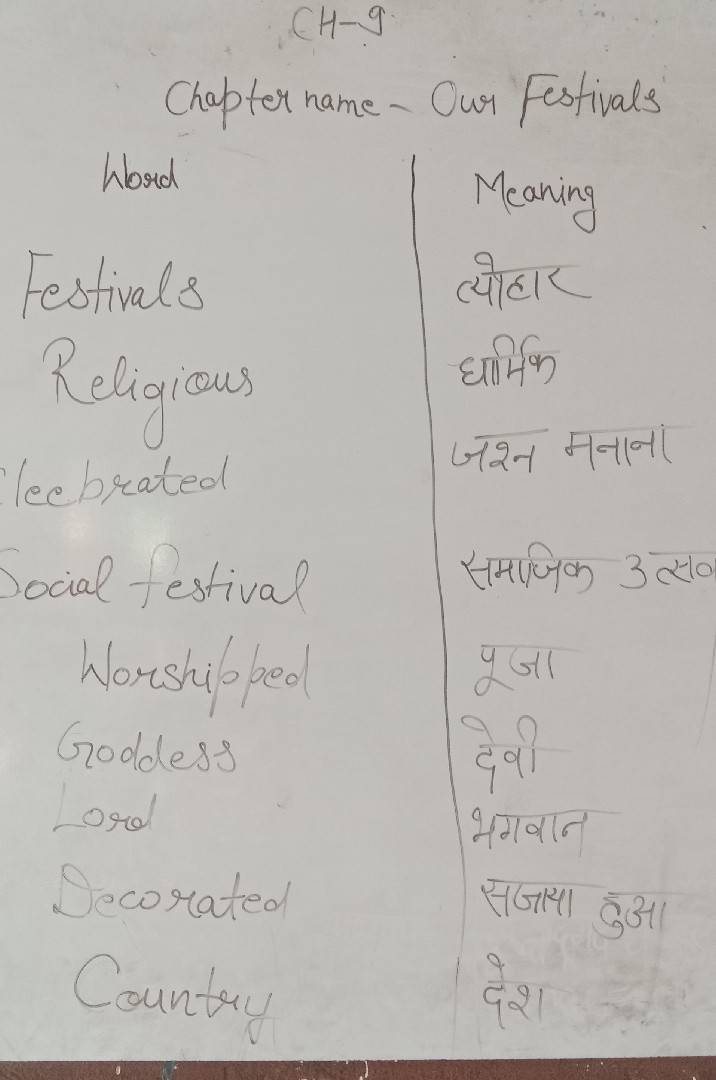 CH-9
Chapter name - Our Festivals
Word Meaning
Festivals त्योहार
Religious धार्मिक
Cleebrated जश्न मनाना
Social festival समाजिक उत्सव
Worshipped पूजा
Goddess देवी
Lord भगवान
Decorated सजाया हुआ
Country देश